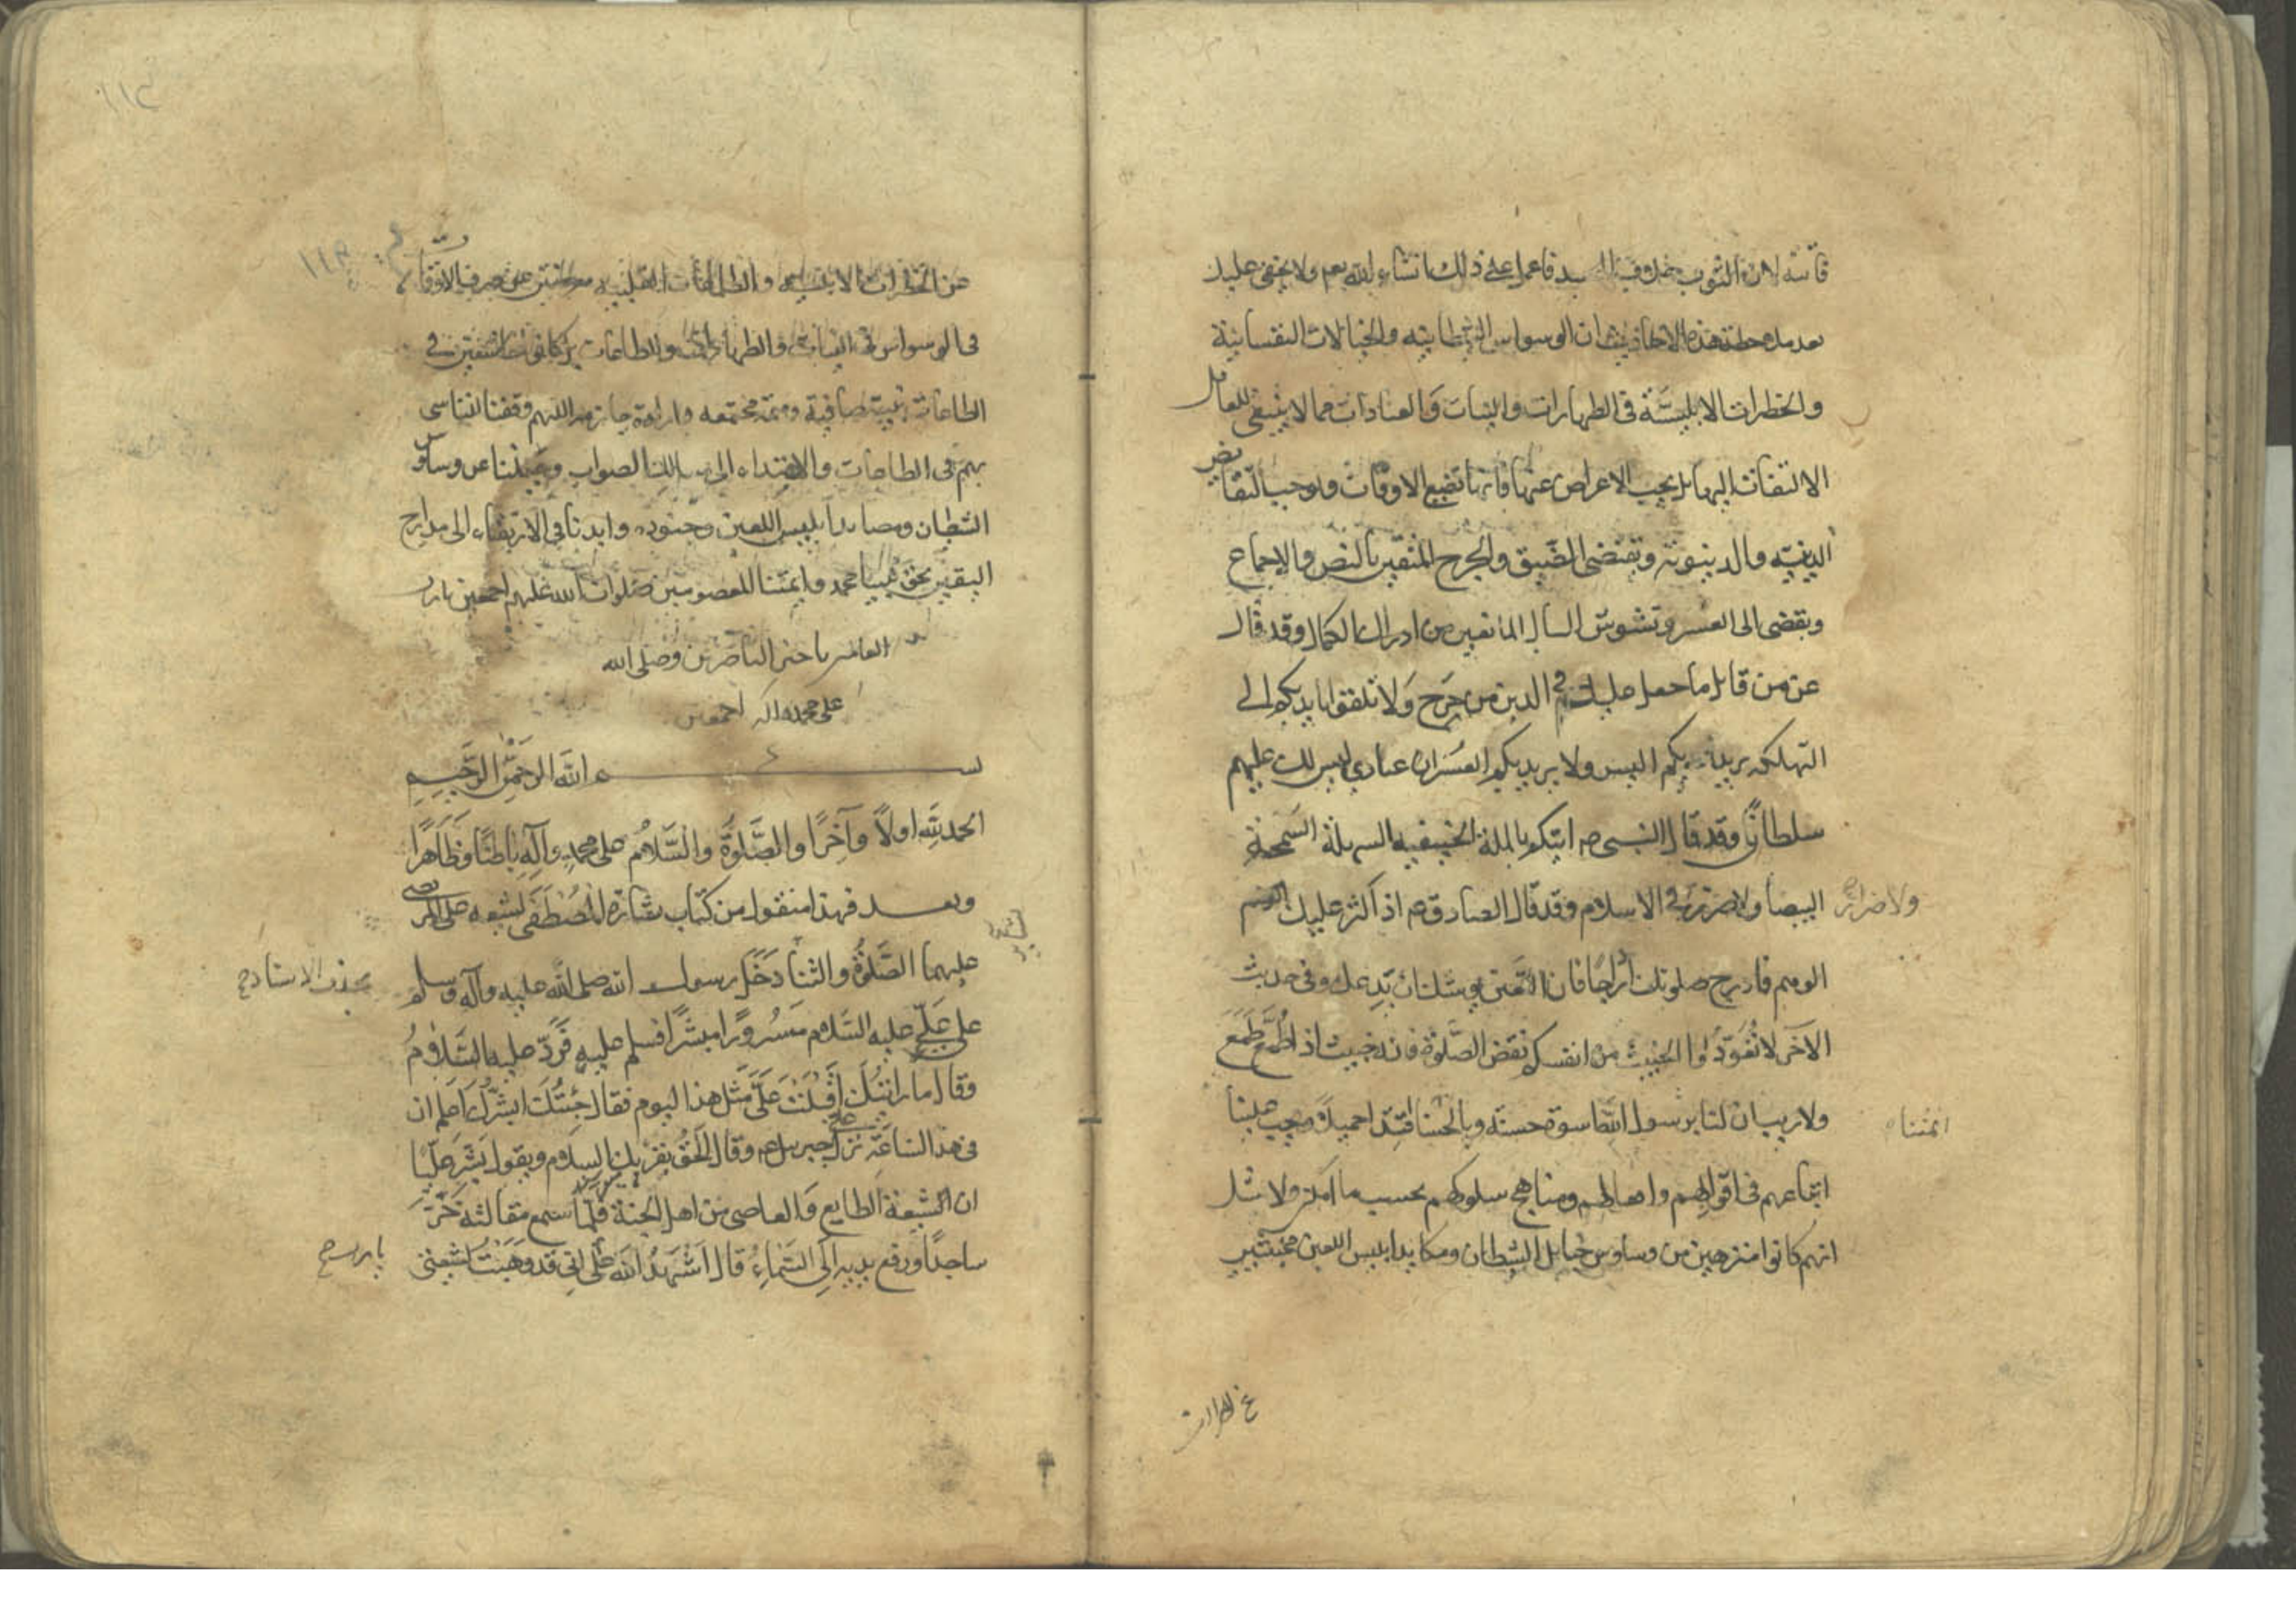 فاعمل على ذلك انشاء الله تعم ولا يخفى عليك
بعد ملاحظة هذه الاحاديث ان الوسواس الشيطانيه والخيالات النفسانية
والخطرات الابليسّة فى الطهارات والنيات وَالعبادات مما لا ينبغى للعاقل
الالتفات اليها بل يجب الاعراض عنها فانها تضيع الاوقات
الدينيّه والدينويّه وتقتضى الضّيق والحرج المنفيّين بالنص والاجماع
ويفضى الى العسر وتشويش البال المانعين من ادراك الكمال وقد قال
عز من قائل ما جعل عليكم فى الدين من حَرَج وَلا تلقوا بايديكم الى
التهلكه يريد بكم اليسر ولا يريد بكم العُسْر ان عبادي ليس لك عليهم
سلطانٌ وقد قال النبى ص اتيتكم بالملة الحنيفيه السهلة السَمحة
البيضا ولا ضرر فى الاسلام وقد قال الصادق ع اذ اكثر عليك
ولا ضرار
الوهم فادرج صلوتك ادراجًا فان اللعين يوشك ان يدعك وفى حديث
الآخر لا تُعَوِّدُوا الخبيث من انفسكم نقض الصّلوة فانه خبيث اذ اُطْمِعَ طَمَعَ
ولا ريب ان لنا برسول الله اسوة حسنة ويجب علينا
ائمتنا
اتباعهم فى اقوالهم وافعالهم ومناهج سلوكهم بحسب ما امكن ولا شك
انهم كانوا منزهين من وساوس حبايل الشيطان ومكايد ابليس اللعين مجتنبين
عن الخطرات الابليسيه
فى الوسواس فى النيات والطهارات والطاعات بل كانوا خاشعين فى
الطاعات بنية صافية وهمّة مجتمعه وارادة جازمه اللهم وفقنا للتاسى
بهم فى الطاعات والاهتداء الى مسالك الصواب وجنبنا عن وساوس
الشيطان ومصايد ابليس اللعين وجنوده وايدنا فى الارتقاء الى مدارج
اليقين بحق نبينا محمد وايمتنا المعصومين صلوات الله عليهم اجمعين يا رب
العالمين يا خير الناصرين وصلى الله
على محمد واله اجمعين
بسم الله الرَّحْمٰنِ الرَّحِيمِ
الحمد لِلّٰهِ اولاً وآخِرًا والصَّلوةُ والسَّلامُ على محمدٍ وآلِهِ بَاطِنًا وَظَاهِرًا
وبعد فهذا منقول من كتاب بشارة المُصْطَفَى لشيعه على المرتضى
عليهما الصَّلوةُ والثنا دَخَلَ رسول الله صلى الله عليه وآلِهِ وسلم
بحذف الاسناد
على عَلىّ عليه السّلام مَسْرُورًا مبشّرًا فسلم عليه فَرَدَّ عليه السَّلامُ
وقال ما رايتُكَ اقبَلْتَ عَلىَّ مثل هذا اليوم فقال جِئْتُكَ ابشّرُكَ اعلم ان
فى هذا السّاعَةِ نزل علىّ جبرئيل ع وقال الحَقُّ يقرئك السلام ويقول بَشِّر عَلِيًّا
ان الشيعة الطايع وَالعاصى من اهل الجنة فلمّا سمع مقالته خَرَّ
ساجدًا ورفع يديه اِلَى السَّمَاءِ قال اَشْهَدُ الله عَلىّ انّى قد وَهَبْتُ لشيعتى